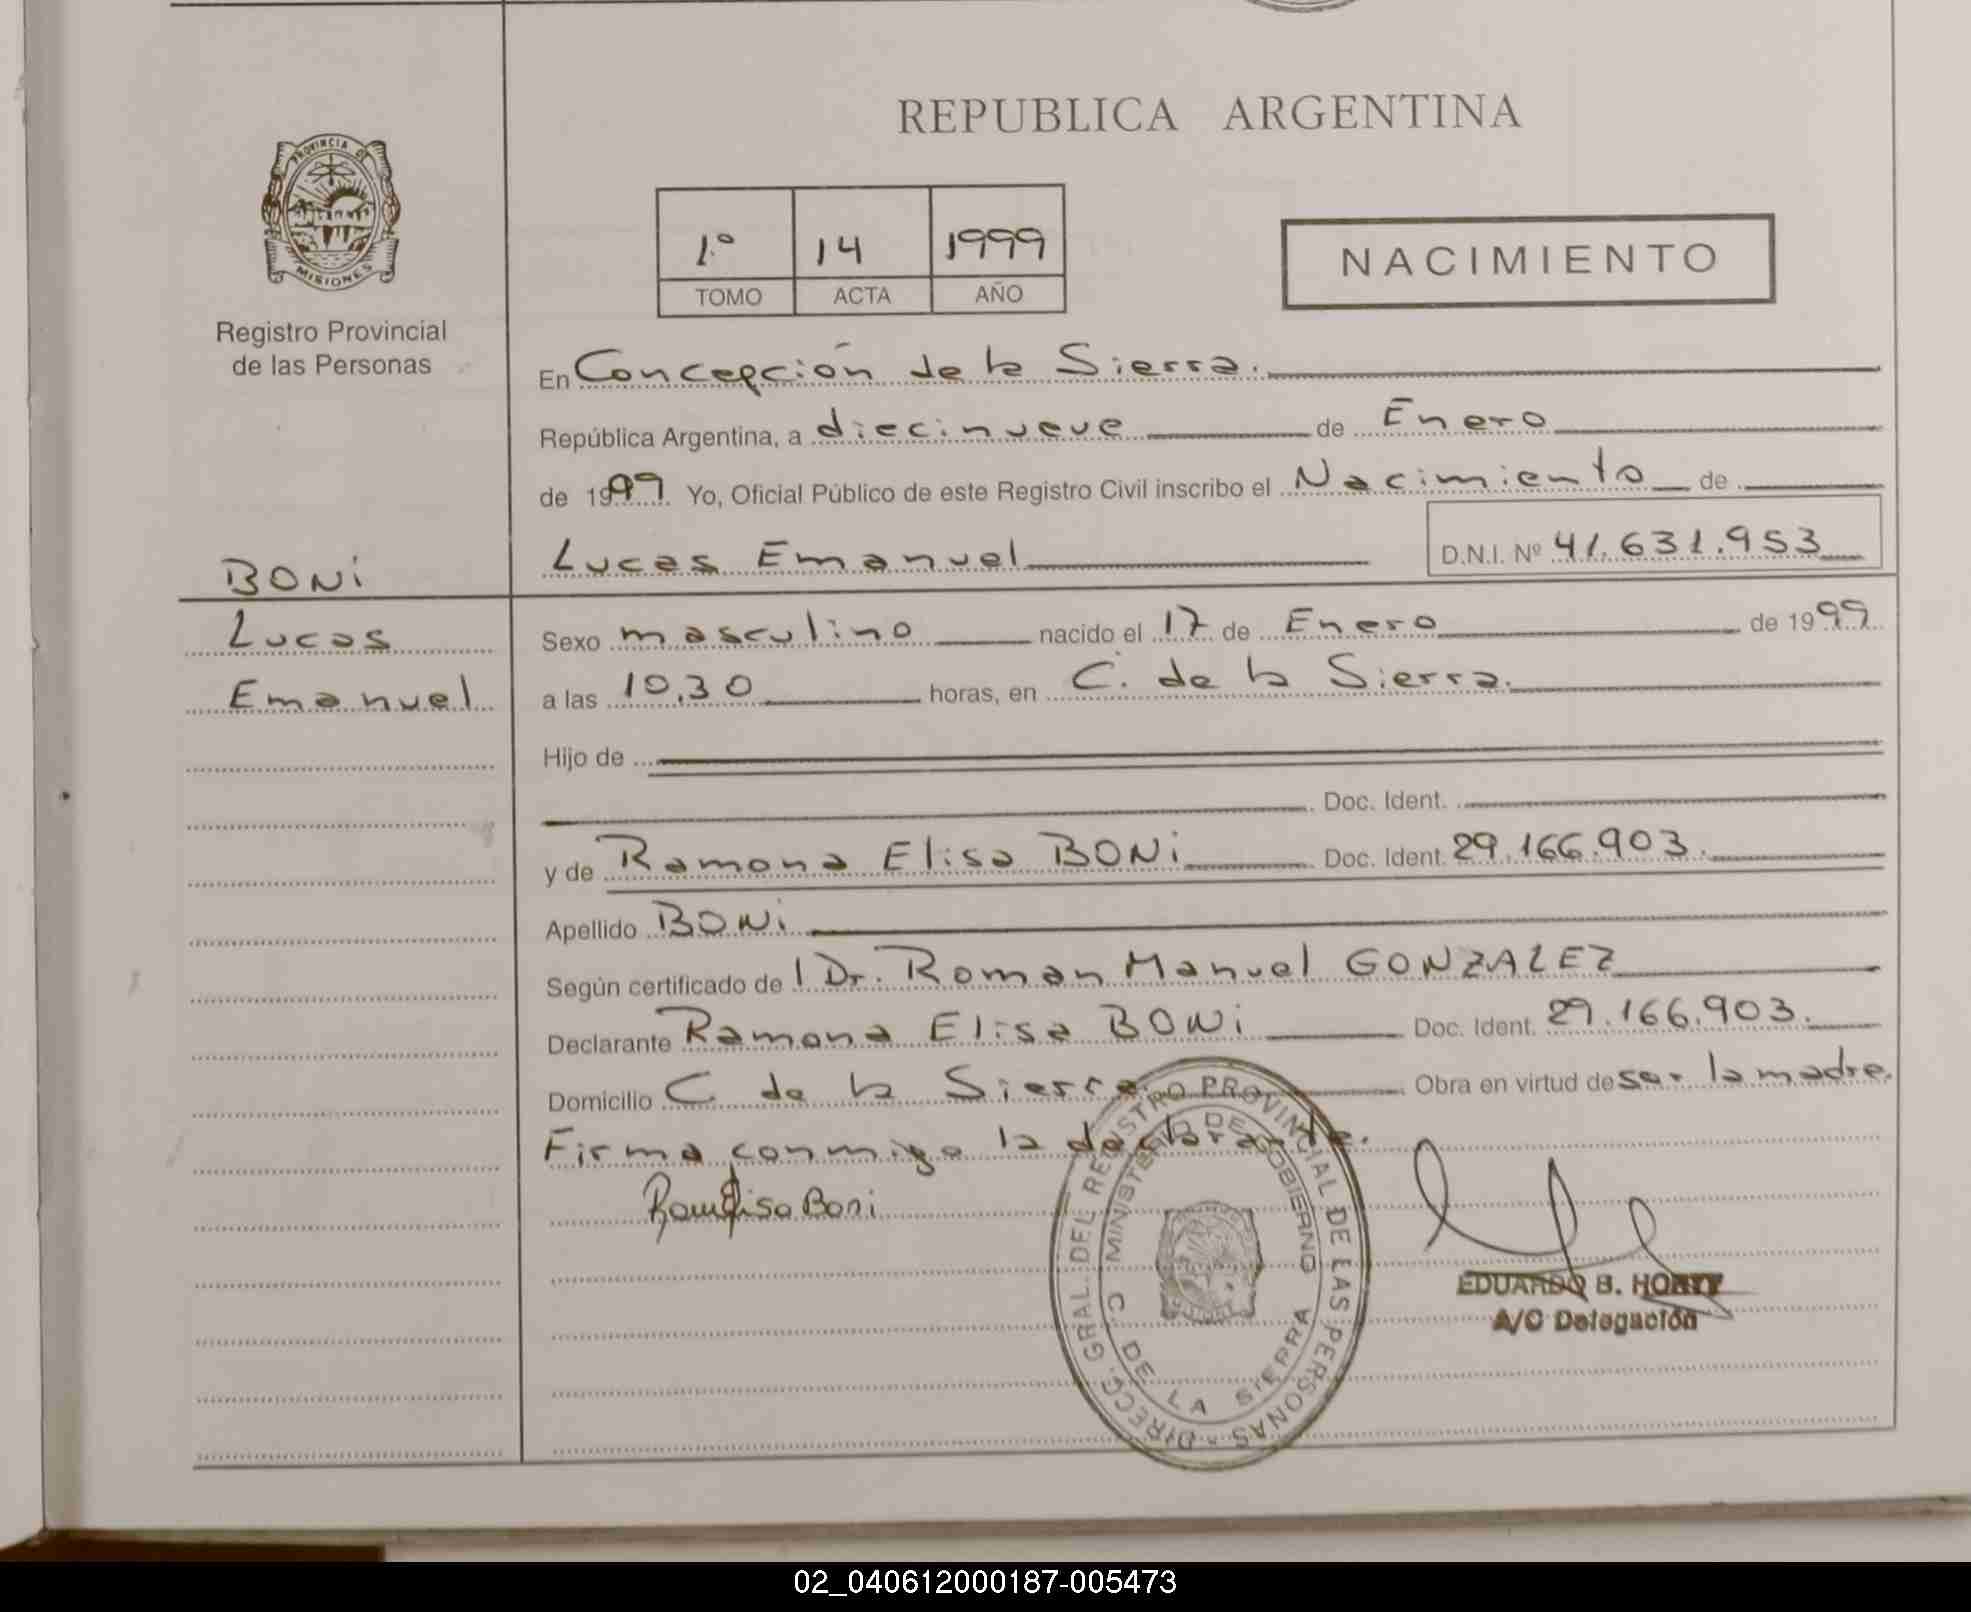 REPUBLICA ARGENTINA
PROVINCIA DE
MISIONES
Registro Provincial
de las Personas
1º 14 1999
TOMO ACTA AÑO
NACIMIENTO
En Concepción de la Sierra.
República Argentina, a diecinueve de Enero
de 1999 Yo, Oficial Público de este Registro Civil inscribo el Nacimiento de
Lucas Emanuel D.N.I. Nº 41.631.953
BONi
Lucas
Emanuel
Sexo masculino nacido el 17 de Enero de 1999
a las 10.30 horas, en C. de la Sierra.
Hijo de
Doc. Ident.
y de Ramona Elisa BONi Doc. Ident. 29.166.903.
Apellido BONi
Según certificado de l Dr. Roman Manuel GONZALEZ
Declarante Ramona Elisa BONi Doc. Ident. 29.166.903.
Domicilio C de la Sierra. Obra en virtud de ser la madre.
Firma conmigo la declarante.
Ram Elisa Boni
DIRECC. GRAL. DEL REGISTRO PROVINCIAL DE LAS PERSONAS
MINISTERIO DE GOBIERNO
C. DE LA SIERRA
EDUARDO B.
A/C Delegación
02_040612000187-005473